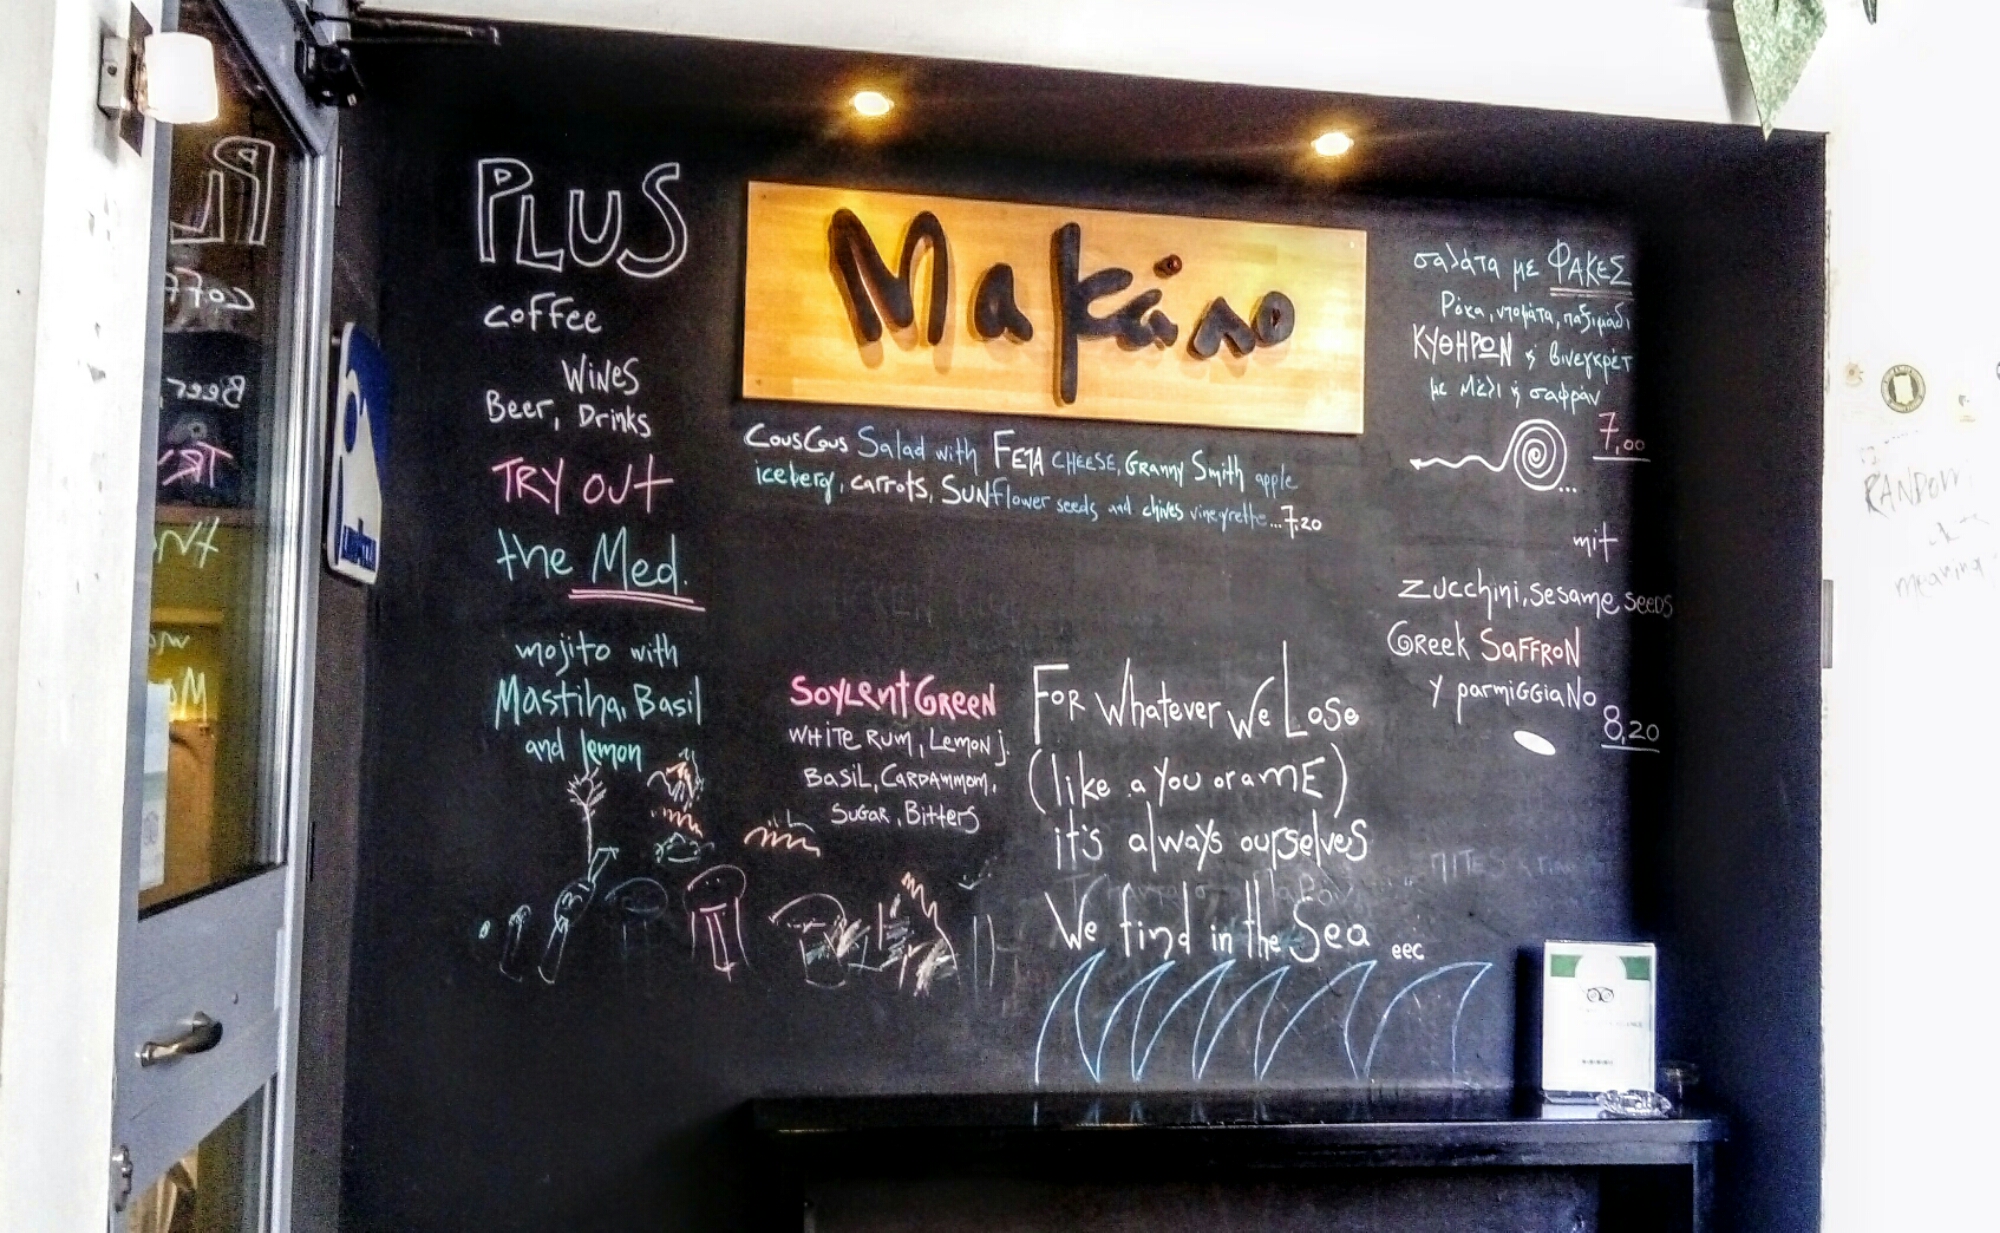 PLUS
coffee
WINES
Beer, Drinks
TRY OUT
the Med.
mojito with
Mastiha, Basil
and lemon
Μακάλο
CousCous Salad with FETA CHEESE, Granny Smith apple
iceberg, carrots, SUNflower seeds and chives vinegrette...7,20
SOYLENT GREEN
WHITE RUM, LEMON J.
BASIL, CARDAMMOM,
SUGAR, Bitters
FOR Whatever We Lose
(like a you or a mE)
it's always ourselves
We find in the Sea eec
σαλάτα με ΦΑΚΕΣ
Ρόκα, ντομάτα, παξιμάδι
ΚΥΘΗΡΩΝ & βινεγκρέτ
με Μέλι & σαφράν
7,00
mit
Zucchini, sesame seeds
Greek SAFFRON
y parmiGGiaNo
8,20
RANDOM
meaning